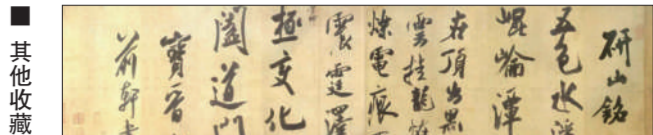 ■ 其他收藏
研山銘
五色水
崐崘潭
在頂出黑
雲挂龍
爍電痕
震霆澤
極变化
闔道門
寶晉
前軒